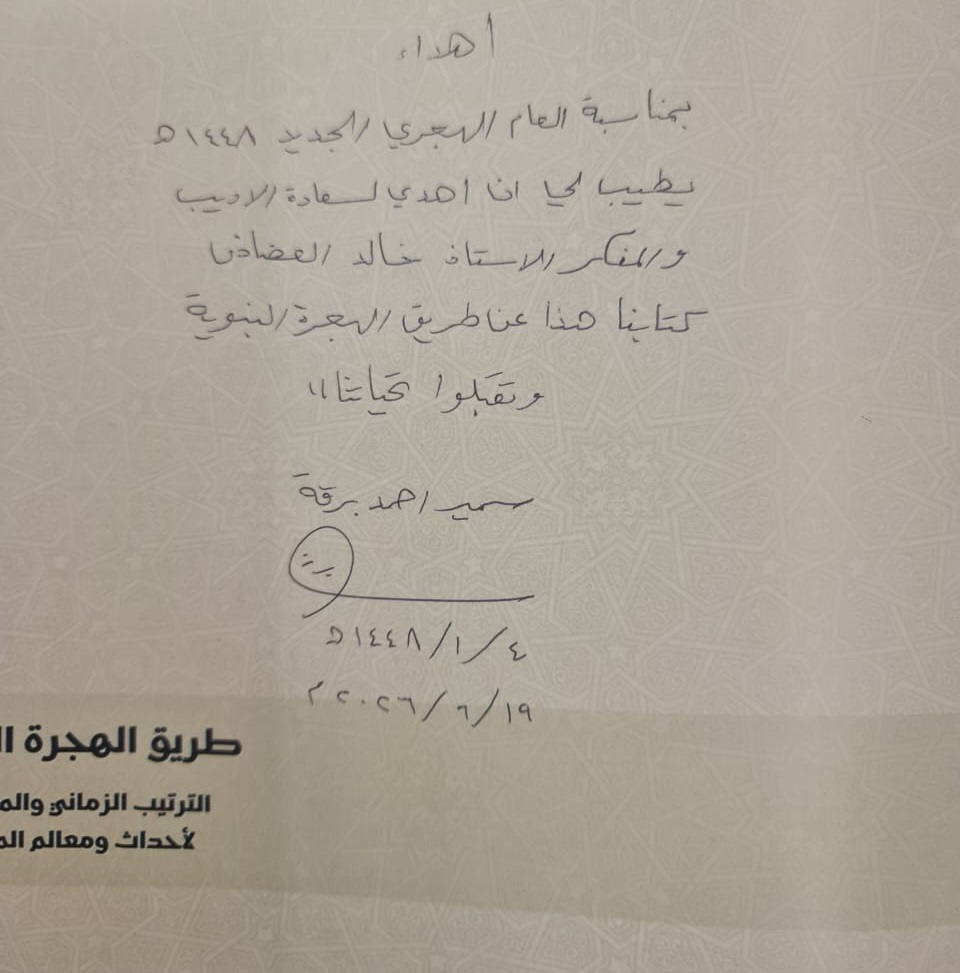 أهداء
بمناسبة العام الهجري الجديد ١٤٤٨ه
يطيب لي ان اهدي لسعادة الاديب
والمفكر الاستاذ خالد
كتابنا هذا عن طريق الهجرة النبوية
وتقبلوا تحياتنا،،
سمير احمد برقة
٤/١/١٤٤٨ه
١٩/٦/٢٠٢٦م
طريق الهجرة ال
الترتيب الزماني والم
لأحداث ومعالم ال